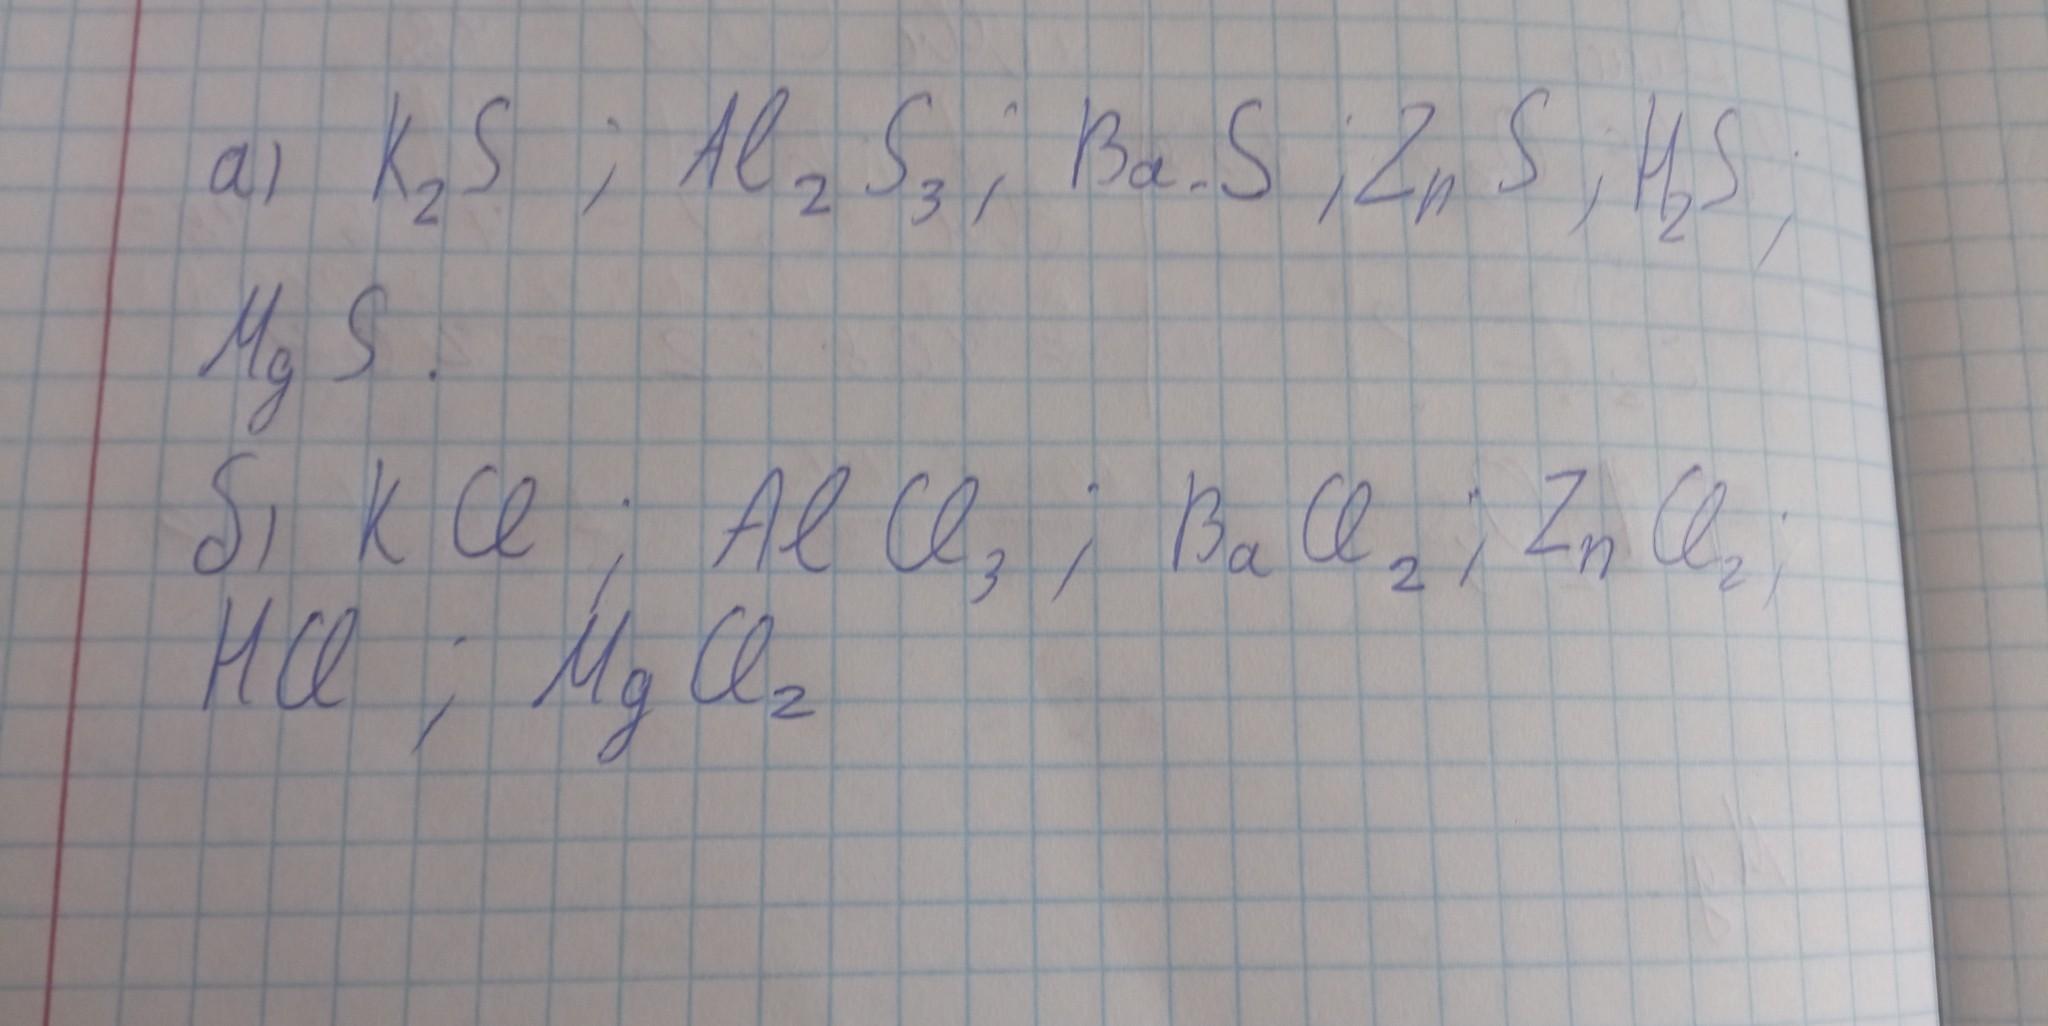 а) K₂S ; Al₂S₃ ; BaS ; ZnS ; H₂S ;
MgS .
б) KCl ; AlCl₃ ; BaCl₂ ; ZnCl₂ ;
HCl ; MgCl₂